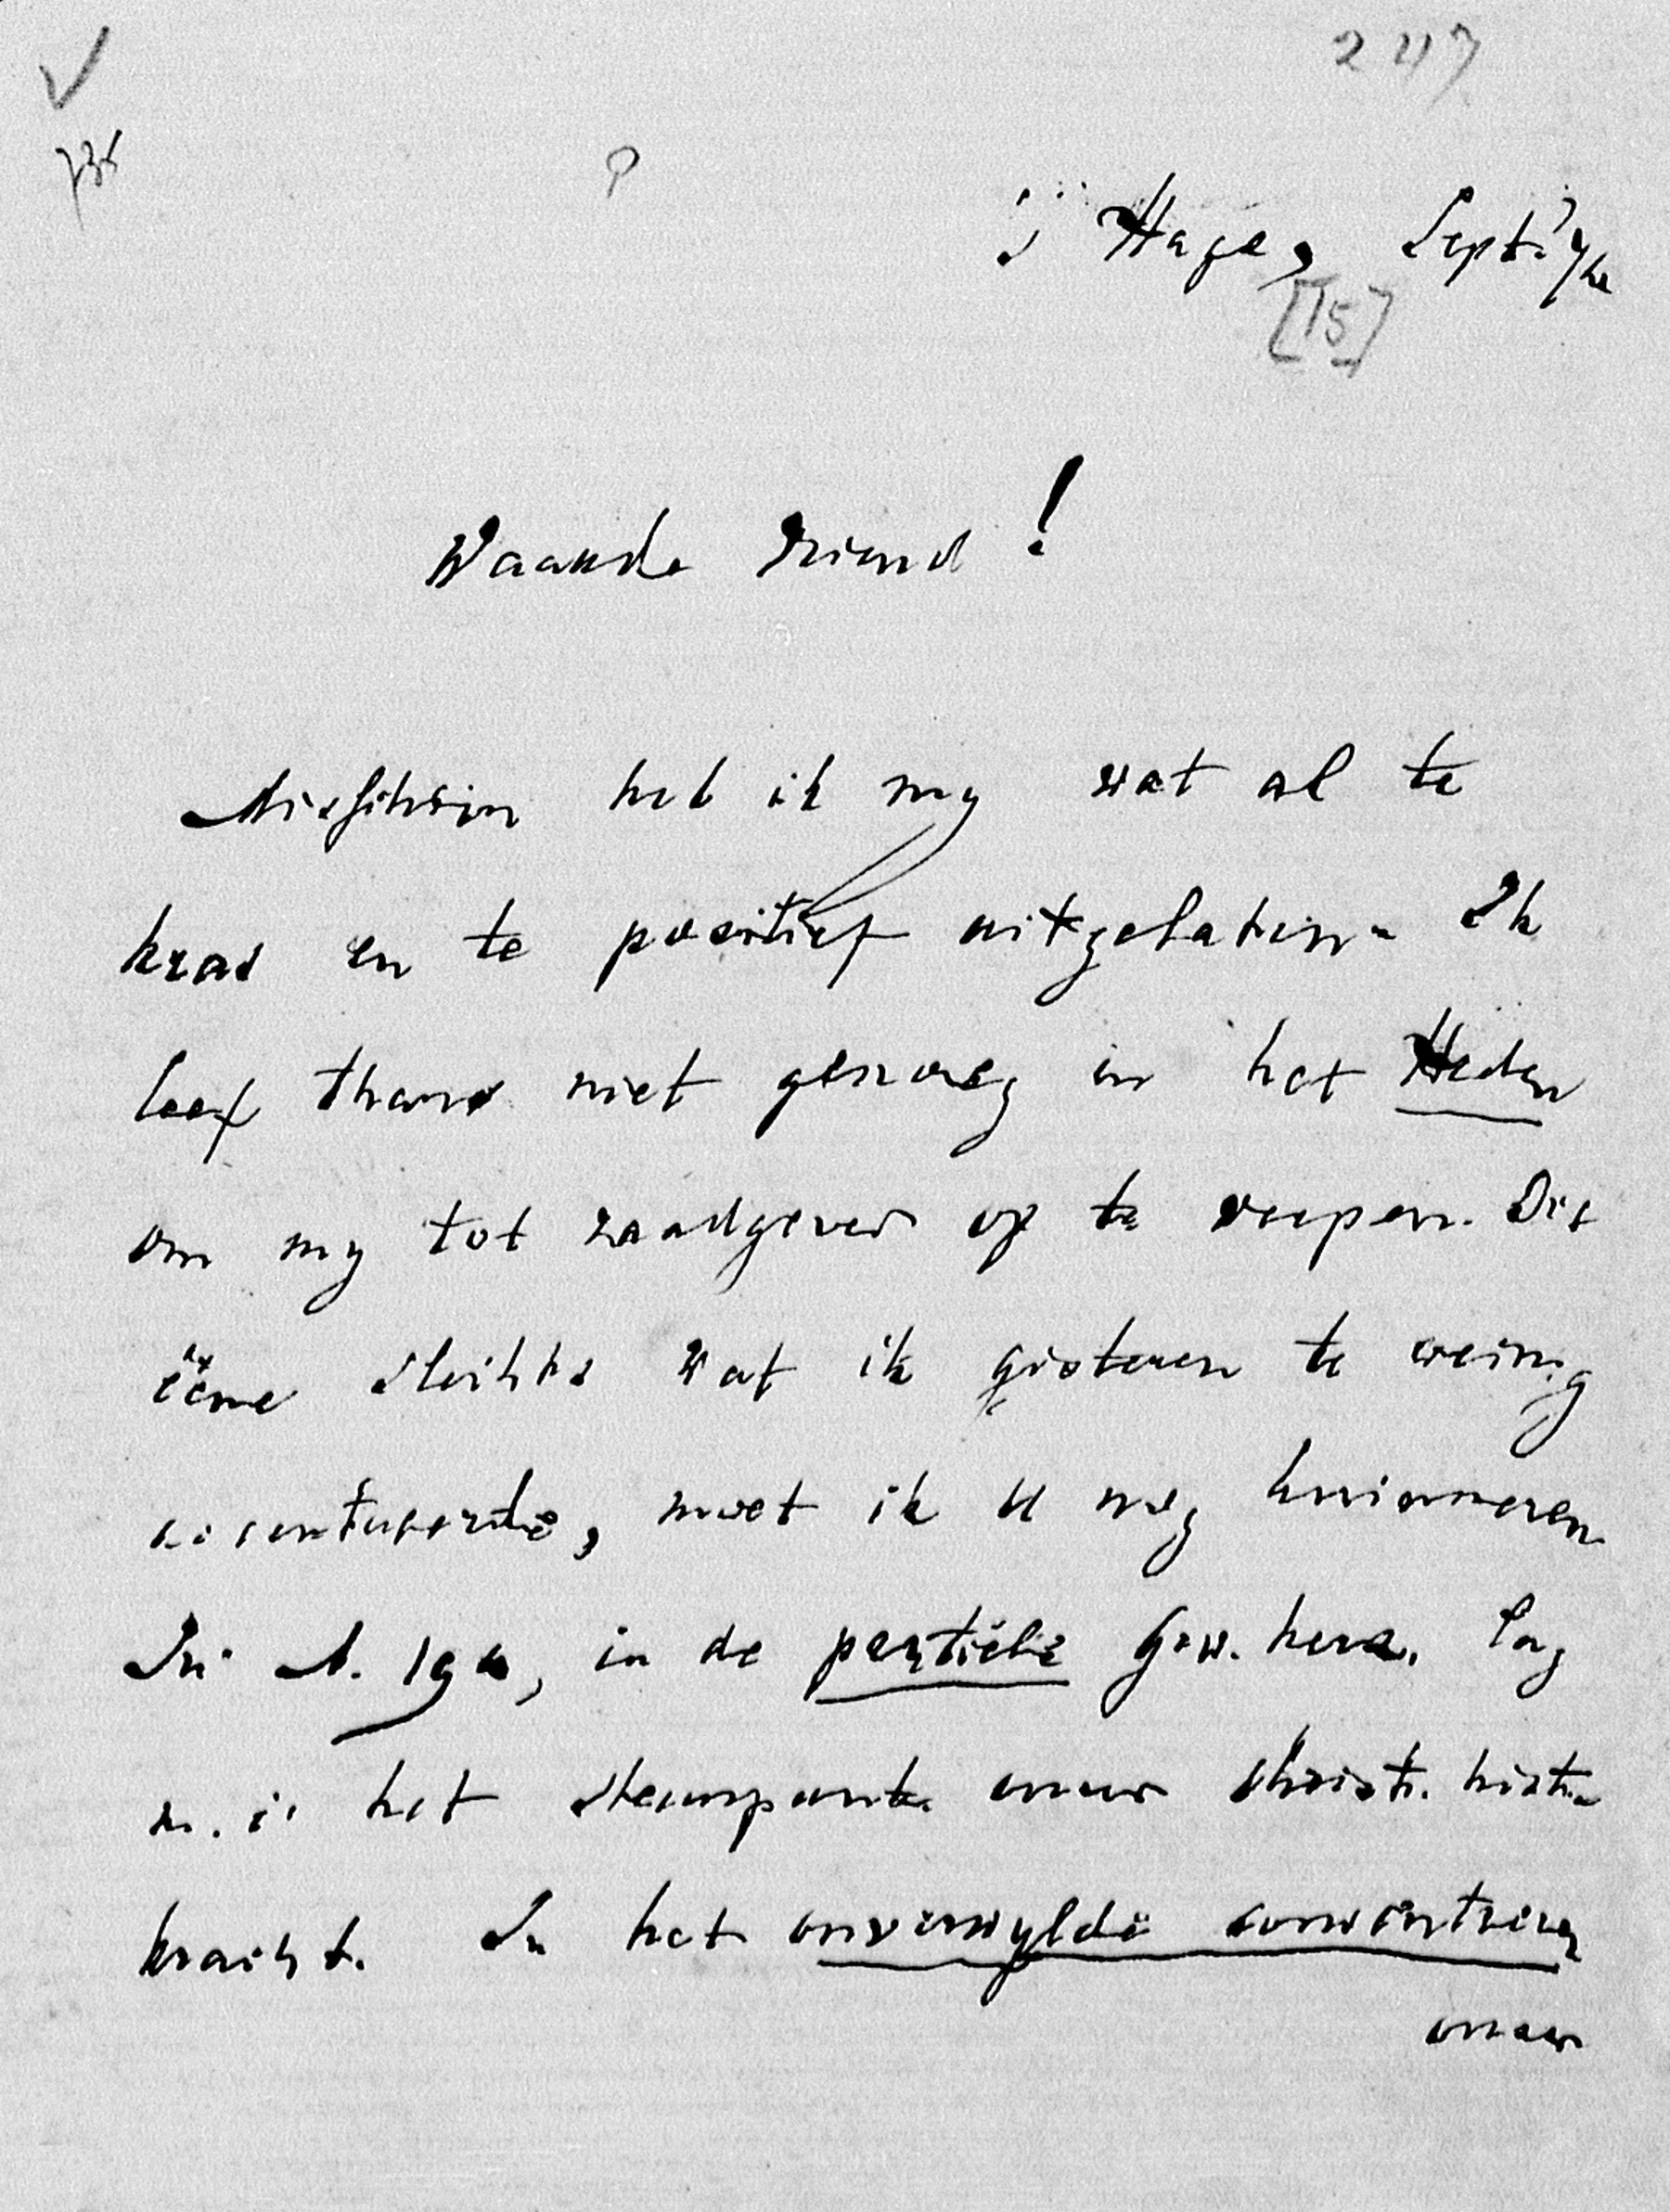 247
's Hage, Sept.
[75]
Waarde Vriend!
Misschien heb ik my wat al te
kras en te positief uitgelaten. Ik
leef thans niet genoeg in het Heden
om my tot raadgever op te werpen. Dit
ééne slechts wat ik gisteren te weinig
accentueerde, moet ik u nog herinneren
In A. 194, in de partiële Grw. herz. lag
m. i. het steunpunt onzer Christ. hist.
kracht. In het onverwyld concentreren
onzer